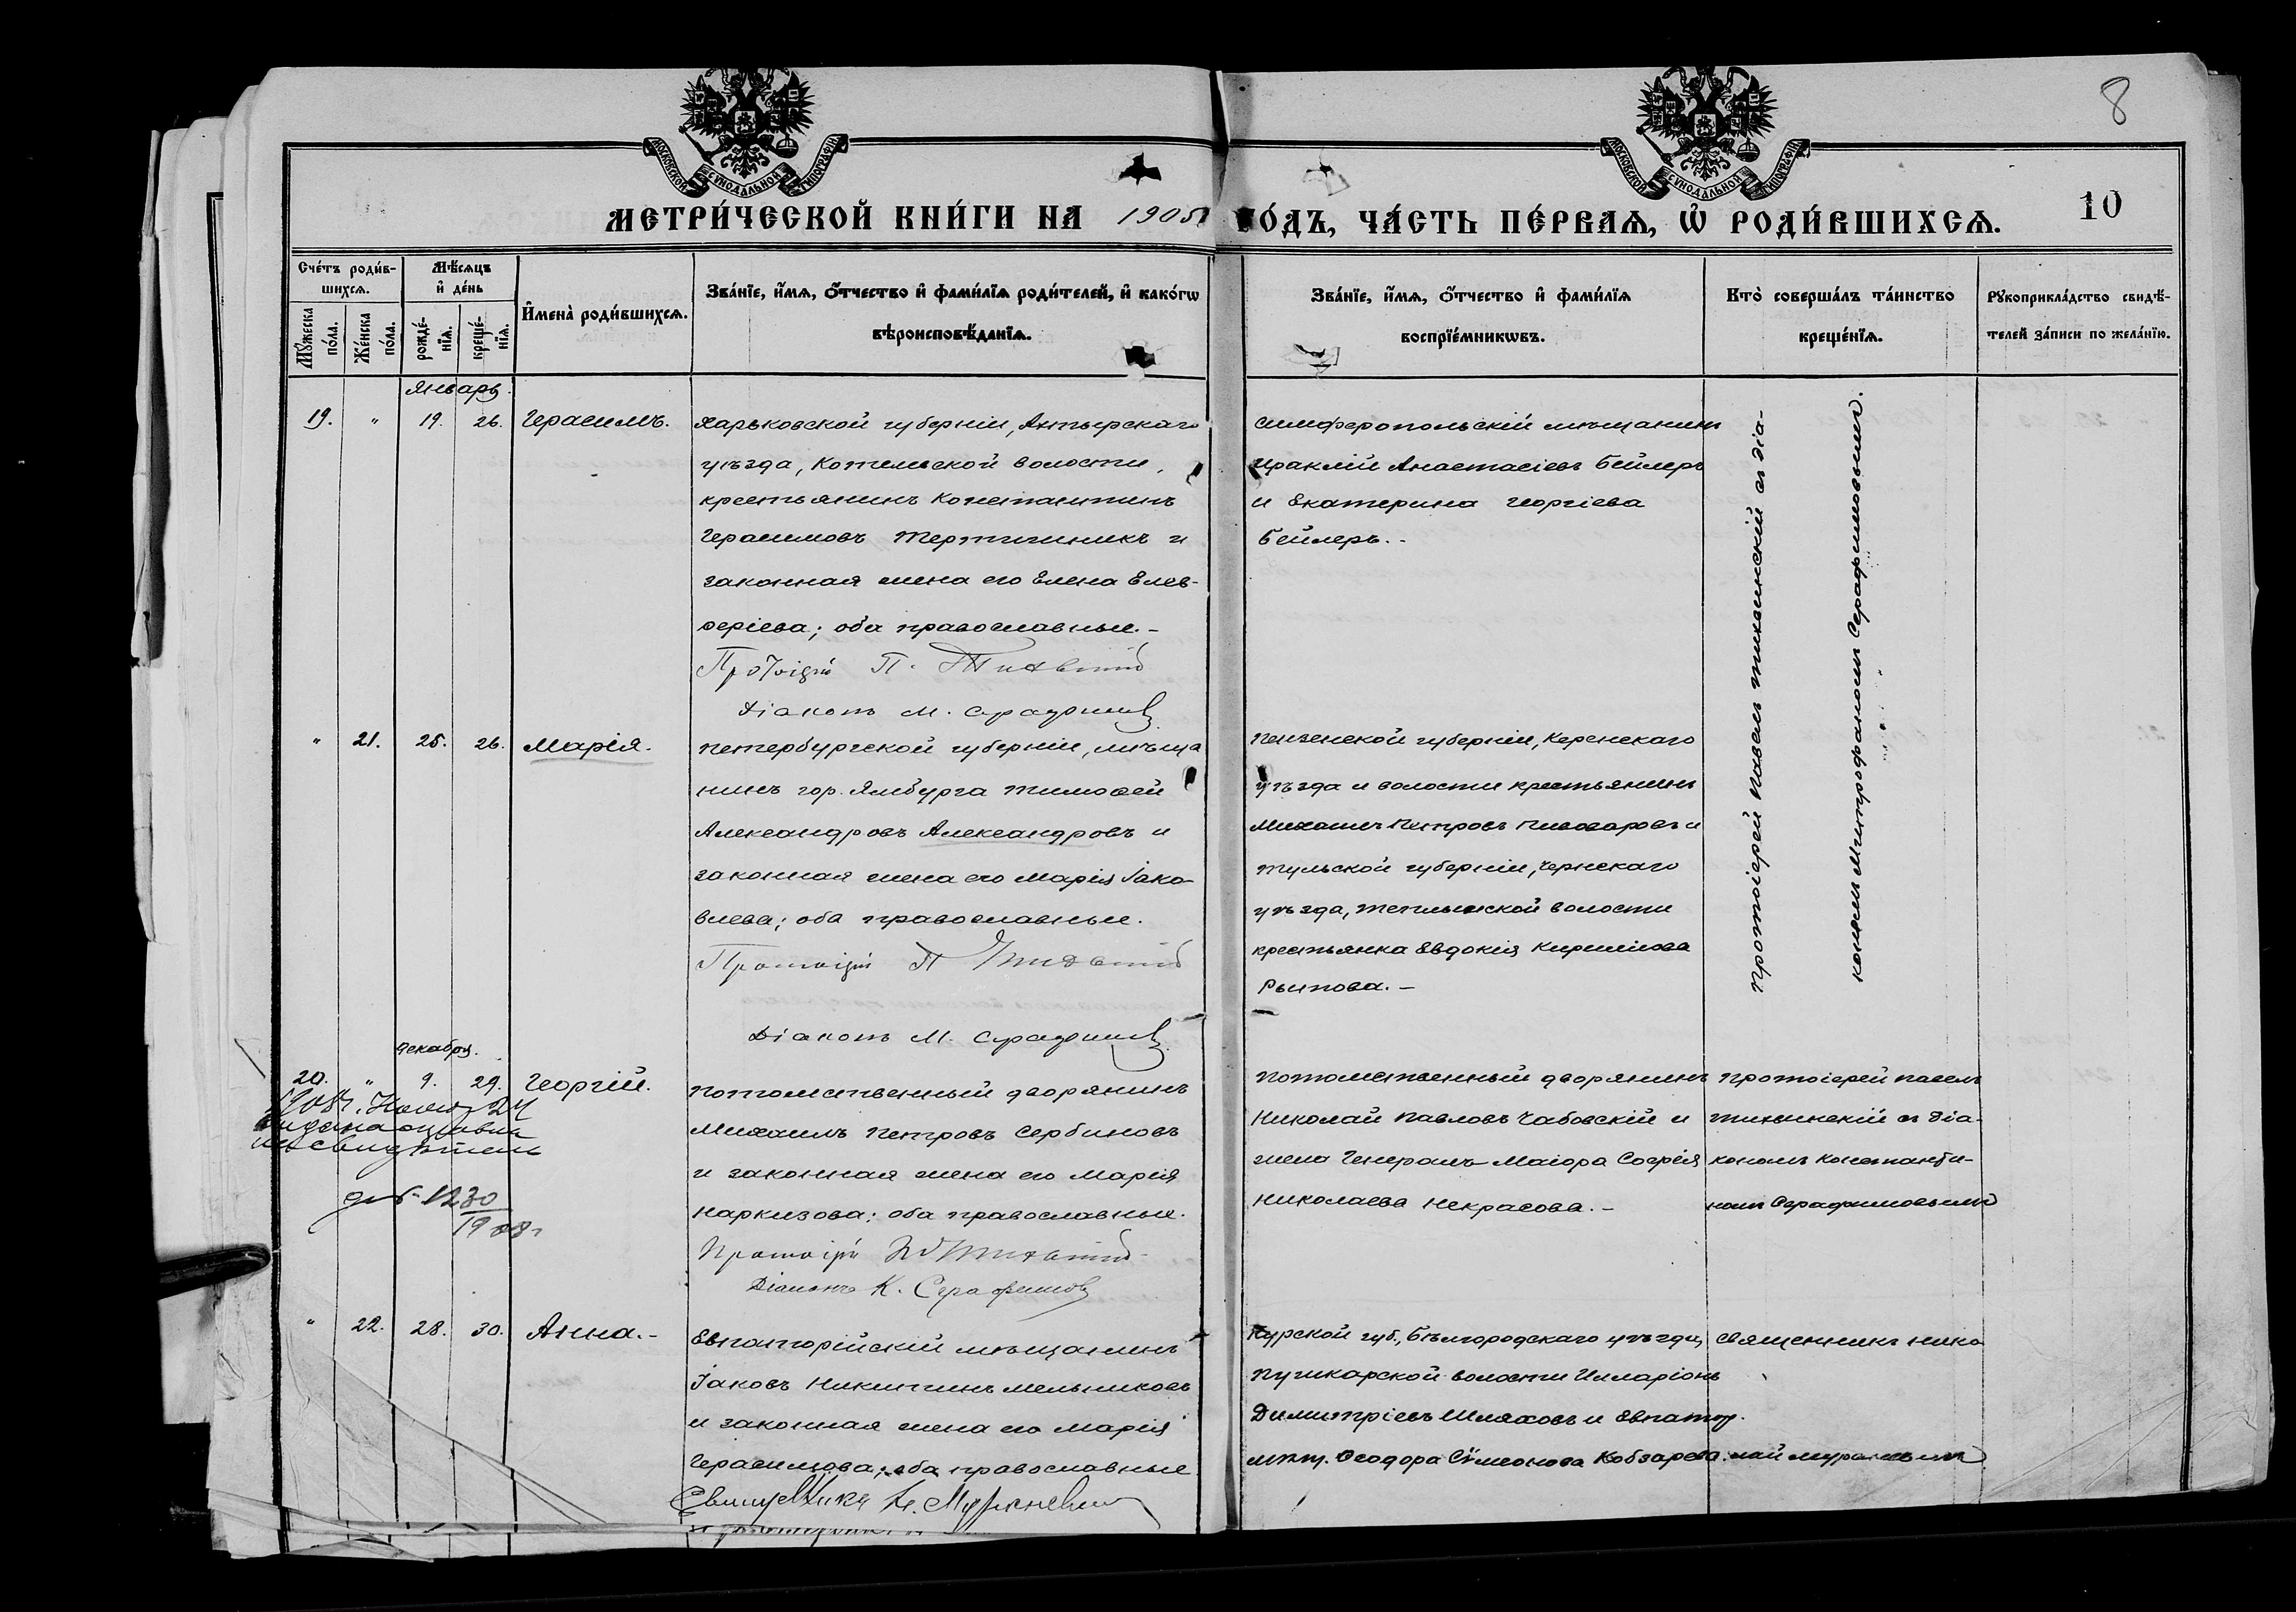 8
МОСКОВСКОЙ СѴНОДАЛЬНОЙ ТИПОГРАФІИ
МОСКОВСКОЙ СѴНОДАЛЬНОЙ ТИПОГРАФІИ
МЕТРИ́ЧЕСКОЙ КНИ́ГИ НА 1905 ГО́ДЪ, ЧА́СТЬ ПЕ́РВАѦ, Ѡ РОДИ́ВШИХСѦ.
10
Сче́тъ роди́в-
шихсѧ.
Мѣ́сѧцъ
и҆ де́нь
Мꙋ́жеска по́ла.
Же́нска по́ла.
рожде́-нїѧ.
креще́-нїѧ.
И҆мена̀ роди́вшихсѧ.
Зва́нїе, и҆́мѧ, ѻ҆́тчество и҆ фами́лїѧ роди́телей, и҆ како́гѡ
вѣроисповѣ́данїѧ.
Зва́нїе, и҆́мѧ, ѻ҆́тчество и҆ фами́лїѧ
воспрїе́мникѡвъ.
Кто̀ соверша́лъ та́инство
креще́нїѧ.
Рꙋкоприкла́дство свидѣ́-
телей за́писи по жела́нїю.
Январь.
19. " 19. 26. Герасимъ.
Харьковской губерніи, Ахтырскаго
уѣзда, Котельской волости,
крестьянинъ Константинъ
Герасимовъ и
законная жена его Елена Елев-
ѳеріева; оба православные.-
Протоіерей П. Тихвинскій
Діаконъ М. Серафимовъ
Симферопольскій мѣщанинъ
Ираклій Анастасіевъ Бейлеръ
и Екатерина Георгіева
Бейлеръ.-
Протоіерей Павелъ Тихвинскій съ діа-
кономъ Митрофаномъ Серафимовымъ.
" 21. 25. 26. Марія.
Петербургской губерніи, мѣща
нинъ гор. Ямбурга Тимоѳей
Александровъ Александровъ и
законная жена его Марія Іако-
влева; оба православные.
Протоіерей П Тихвинскій
Діаконъ М. Серафимовъ
Пензенской губерніи, Керенскаго
уѣзда и волости крестьянинъ
Михаилъ Петровъ Пивоваровъ и
Тульской губерніи, Чернскаго
уѣзда, волости
крестьянка Евдокія Кириллова
Рыпова.-
Декабрь.
20. " 9. 29. Георгій.
1908г. 24
Выдана
дъ 1230
1908г
Потомственный дворянинъ
Михаилъ Петровъ Сербиновъ
и законная жена его Марія
Наркизова; оба православные.
Протоіерей П Тихвинскій
Діаконъ К. Серафимовъ
Потомственный дворянинъ
Николай Павловъ Чабовскій и
жена Генералъ-Маіора Софія
Николаева Некрасова.-
Протоіерей Павелъ
Тихвинскій съ діа-
кономъ Константи-
номъ Серафимовымъ
" 22. 28. 30. Анна.-
Евпаторійскій мѣщанинъ
Іаковъ Никитинъ Мельниковъ
и законная жена его Марія
Герасимова; оба православные
Священникъ Н. Мураневичъ
Курской губ., Бѣлгородскаго уѣзда,
Пушкарской волости Илларіонъ
Димитріевъ Шляховъ и Евпатор.
мѣщ. Ѳеодора Сѵмеонова Кобзарева.
Священникъ Нико
лай